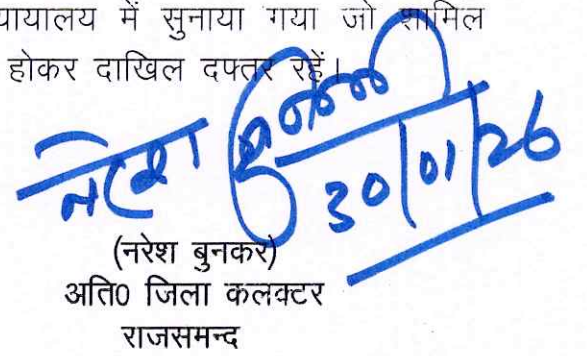 न्यायालय में सुनाया गया जो शामिल
होकर दाखिल दफ्तर रहें।
नरेश
30/01/26
(नरेश बुनकर)
अति0 जिला कलक्टर
राजसमन्द